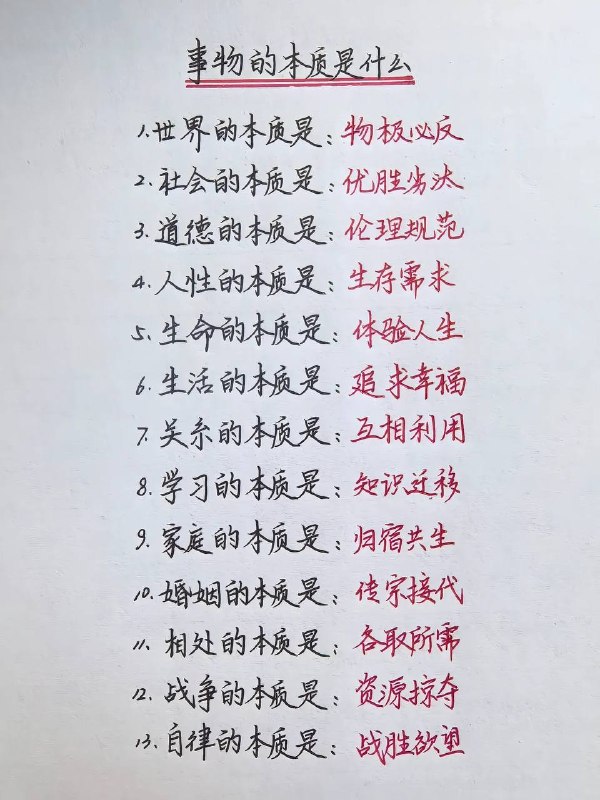 事物的本质是什么
1.世界的本质是：物极必反
2.社会的本质是：优胜劣汰
3.道德的本质是：伦理规范
4.人性的本质是：生存需求
5.生命的本质是：体验人生
6.生活的本质是：追求幸福
7.关系的本质是：互相利用
8.学习的本质是：知识迁移
9.家庭的本质是：归宿共生
10.婚姻的本质是：传宗接代
11.相处的本质是：各取所需
12.战争的本质是：资源掠夺
13.自律的本质是：战胜欲望